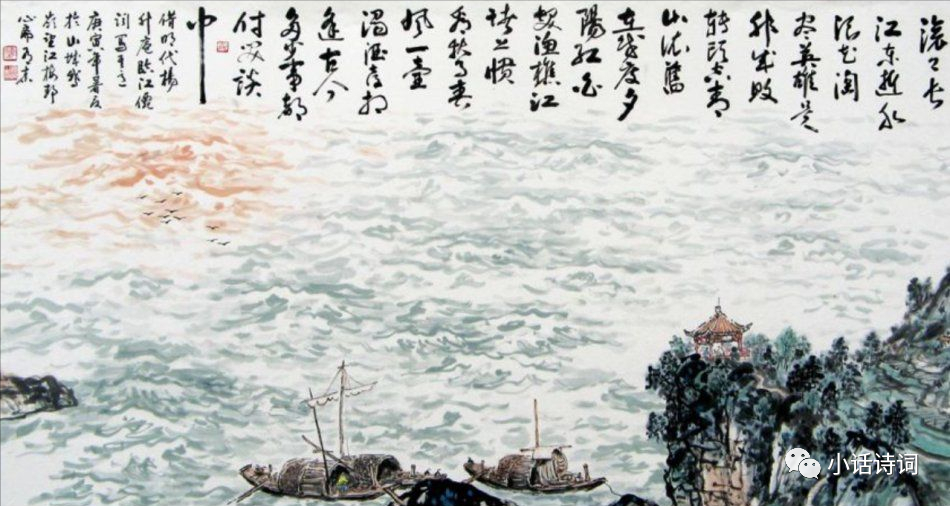 滚〻长
江东逝水
浪花淘
尽英雄是
非成败
转头空青
山依旧
在几度夕
阳红白
发渔樵江
渚上惯
看秋月春
风一壶
浊酒喜相
逢古今
多少事都
付笑谈
中
借明代杨
升庵临江仙
词写其意
庚寅年
于山城鹅
岭望江
小话诗词